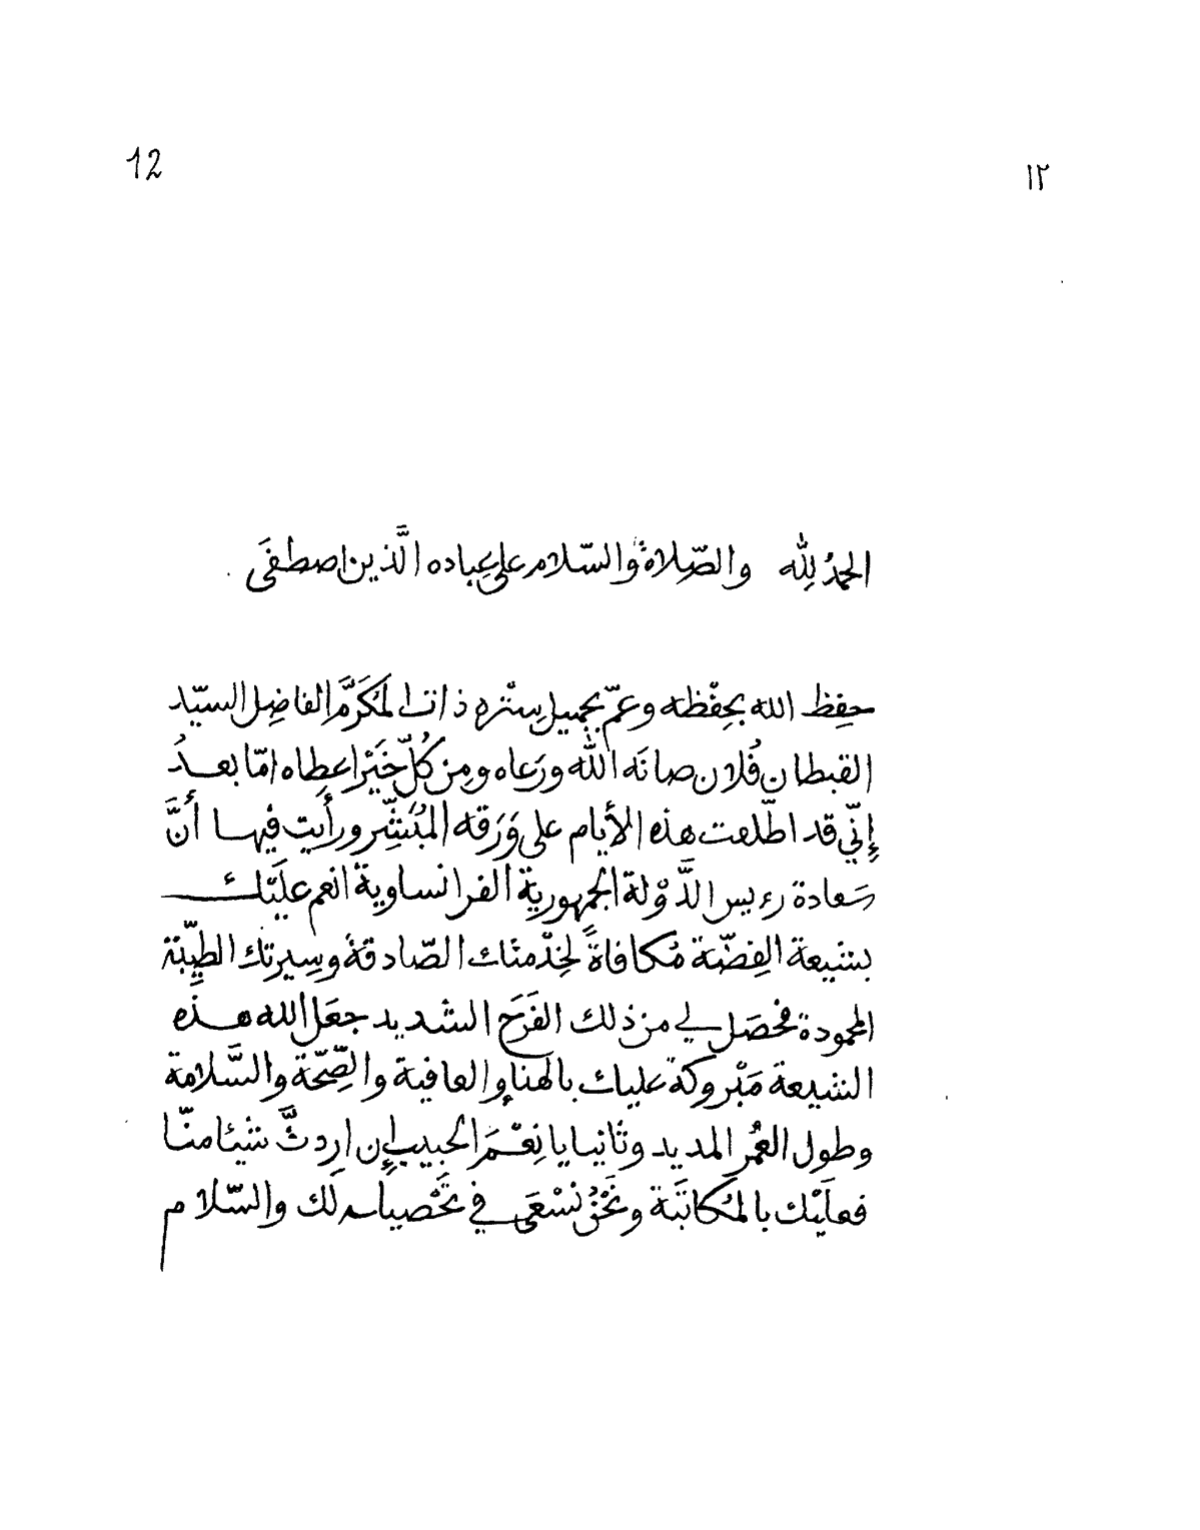 12
١٢
الحمدُ لِلّه والصّلاةُ والسّلام على عِباده الَّذين اصطفَى
حفِظ الله بحِفْظه وعمّ بجميل سِتْره ذات المُكَرَّم الفاضِل السيّد
القبطان فُلان صانَه اللّه ورَعاه ومِن كُلّ خَيْر اعطاه امّا بعدُ
إِنّي قد اطّلعت هذه الأيام على وَرَقه المُبَشِّر ورأيت فيها أنَّ
سَعادة رءيس الدَّوْلة الجمهورية الفرانساوية انعم علَيْك
بشيعة الفِضّة مُكافاةً لخِدْمتك الصّادقة وسِيرتك الطيِّبة
المحمودة فحصَل لي من ذلك الفَرَح الشديد جعَل الله هذه
الشيعة مَبْروكة عليك بالهناء والعافية والصِّحّة والسَّلامة
وطول العُمْر المديد وثانيا يا نِعْمَ الحبيب إِن ارِدتَّ شيئا منّا
فعلَيْك بالمُكاتَبَة ونَحْنُ نَسْعَى في تَحْصيله لَك والسّلام